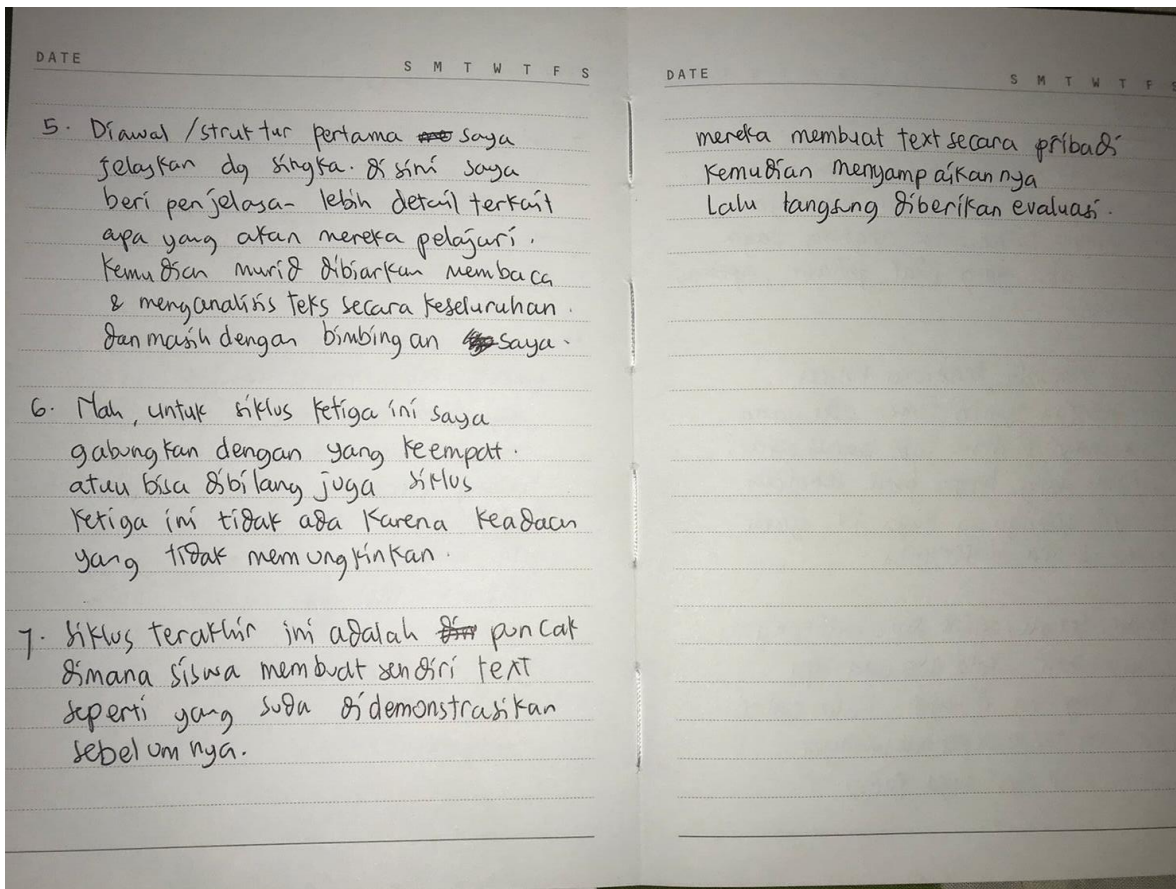 DATE
S M T W T F S
5. Diawal /struktur pertama saya
jelaskan dg singka. disini saya
beri penjelasa- lebih detail terkait
apa yang akan mereka pelajari.
Kemudian murid dibiarkan membaca
& menganalisis teks secara keseluruhan.
dan masih dengan bimbingan saya.
6. Nah, untuk siklus ketiga ini saya
gabungkan dengan yang keempat.
atau bisa dibilang juga siklus
ketiga ini tidak ada karena keadaan
yang tidak memungkinkan.
7. Siklus terakhir ini adalah puncak
dimana siswa membuat sendiri text
seperti yang suda didemonstrasikan
sebelumnya.
DATE
S M T W T F S
mereka membuat text secara pribadi
kemudian menyampaikannya
Lalu langsung diberikan evaluasi.